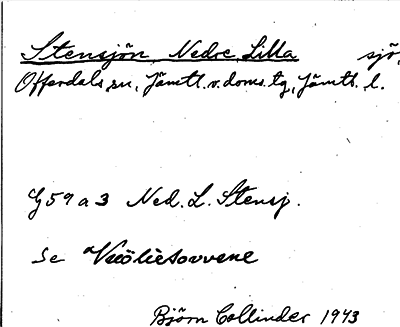 Stensjön Nedre Lilla sjö,
Offerdals sn, Jämtl. v. doms. tg, Jämtl. l.
G 59 a 3 Ned. L. Stensj.
Se Vuölietsovvene
Björn Collinder 1943